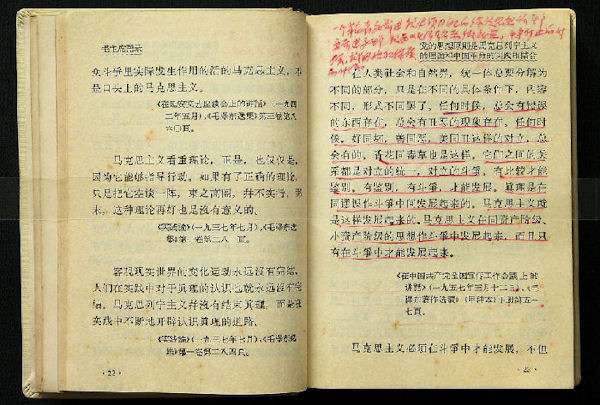 毛主席語录
众斗爭里实际发生作用的活的马克思主义,不
是口头上的马克思主义。
《在延安文艺座談会上的讲話》(一九四
二年五月),《毛泽东选集》第三卷第八
六〇頁。
马克思主义看重理論,正是,也仅仅是,
因为它能够指导行动。如果有了正确的理論,
只是把它空談一陣,束之高閣,并不实行,那
末,这种理論再好也是沒有意义的。
《实践論》(一九三七年七月),《毛泽东选
集》第一卷第二八一頁。
客观现实世界的变化运动永远沒有完結,
人们在实践中对于真理的认识也就永远沒有完
結。马克思列宁主义并沒有結束真理,而是在
实践中不断地开辟认识真理的道路。
《实践論》(一九三七年七月),《毛泽东选
集》第一卷第二八四頁。
·22·
党的思想原則是马克思列宁主义
的理論和中国革命的实践相結合
在人类社会和自然界,統一体总要分解为
不同的部分,只是在不同的具体条件下,內容
不同,形式不同罢了。任何时候,总会有錯誤
的东西存在,总会有丑恶的现象存在。任何时
候,好同坏,善同恶,美同丑这样的对立,总
会有的。香花同毒草也是这样。它们之間的关
系都是对立的統一,对立的斗爭。有比較才能
鉴別。有鉴別,有斗爭,才能发展。真理是在
同謬誤作斗爭中间发展起来的。马克思主义就
是这样发展起来的。马克思主义在同資产阶级、
小資产阶级的思想作斗爭中发展起来,而且只
有在斗爭中才能发展起来。
《在中国共产党全国宣传工作会議上的
讲話》(一九五七年三月十二日),《毛
泽东著作选讀》(甲种本)下册第五一
七頁。
马克思主义必須在斗爭中才能发展,不但
·23·